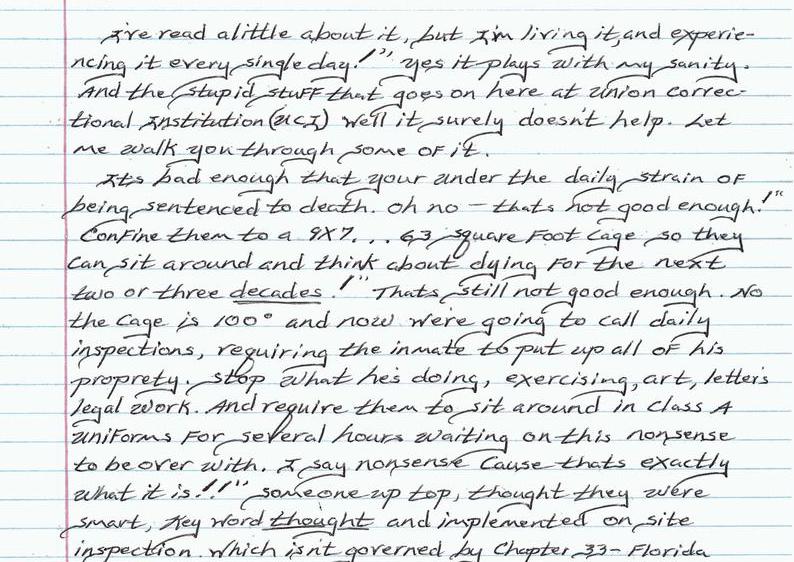 I've read alittle about it, but I'm living it, and experie-
ncing it every single day!" yes it plays with my sanity.
And the stupid stuff that goes on here at Union Correc-
tional Institution (UCI) we'll it surely doesn't help. Let
me walk you through some of it.
Its bad enough that your under the daily strain of
being sentenced to death. Oh no - thats not good enough!"
Confine them to a 9X7... 63 square foot cage so they
can sit around and think about dying for the next
two or three decades!" Thats still not good enough. No
the cage is 100° and now we're going to call daily
inspections, requiring the inmate to put up all of his
proprety. Stop what he's doing, exercising, art, letter's
legal work. And require them to sit around in Class A
uniforms for several hours waiting on this nonsense
to be over with. I say nonsense cause thats exactly
what it is!!" someone up top, thought they were
smart, key word thought and implemented on site
inspection. Which isn't governed by Chapter 33- Florida